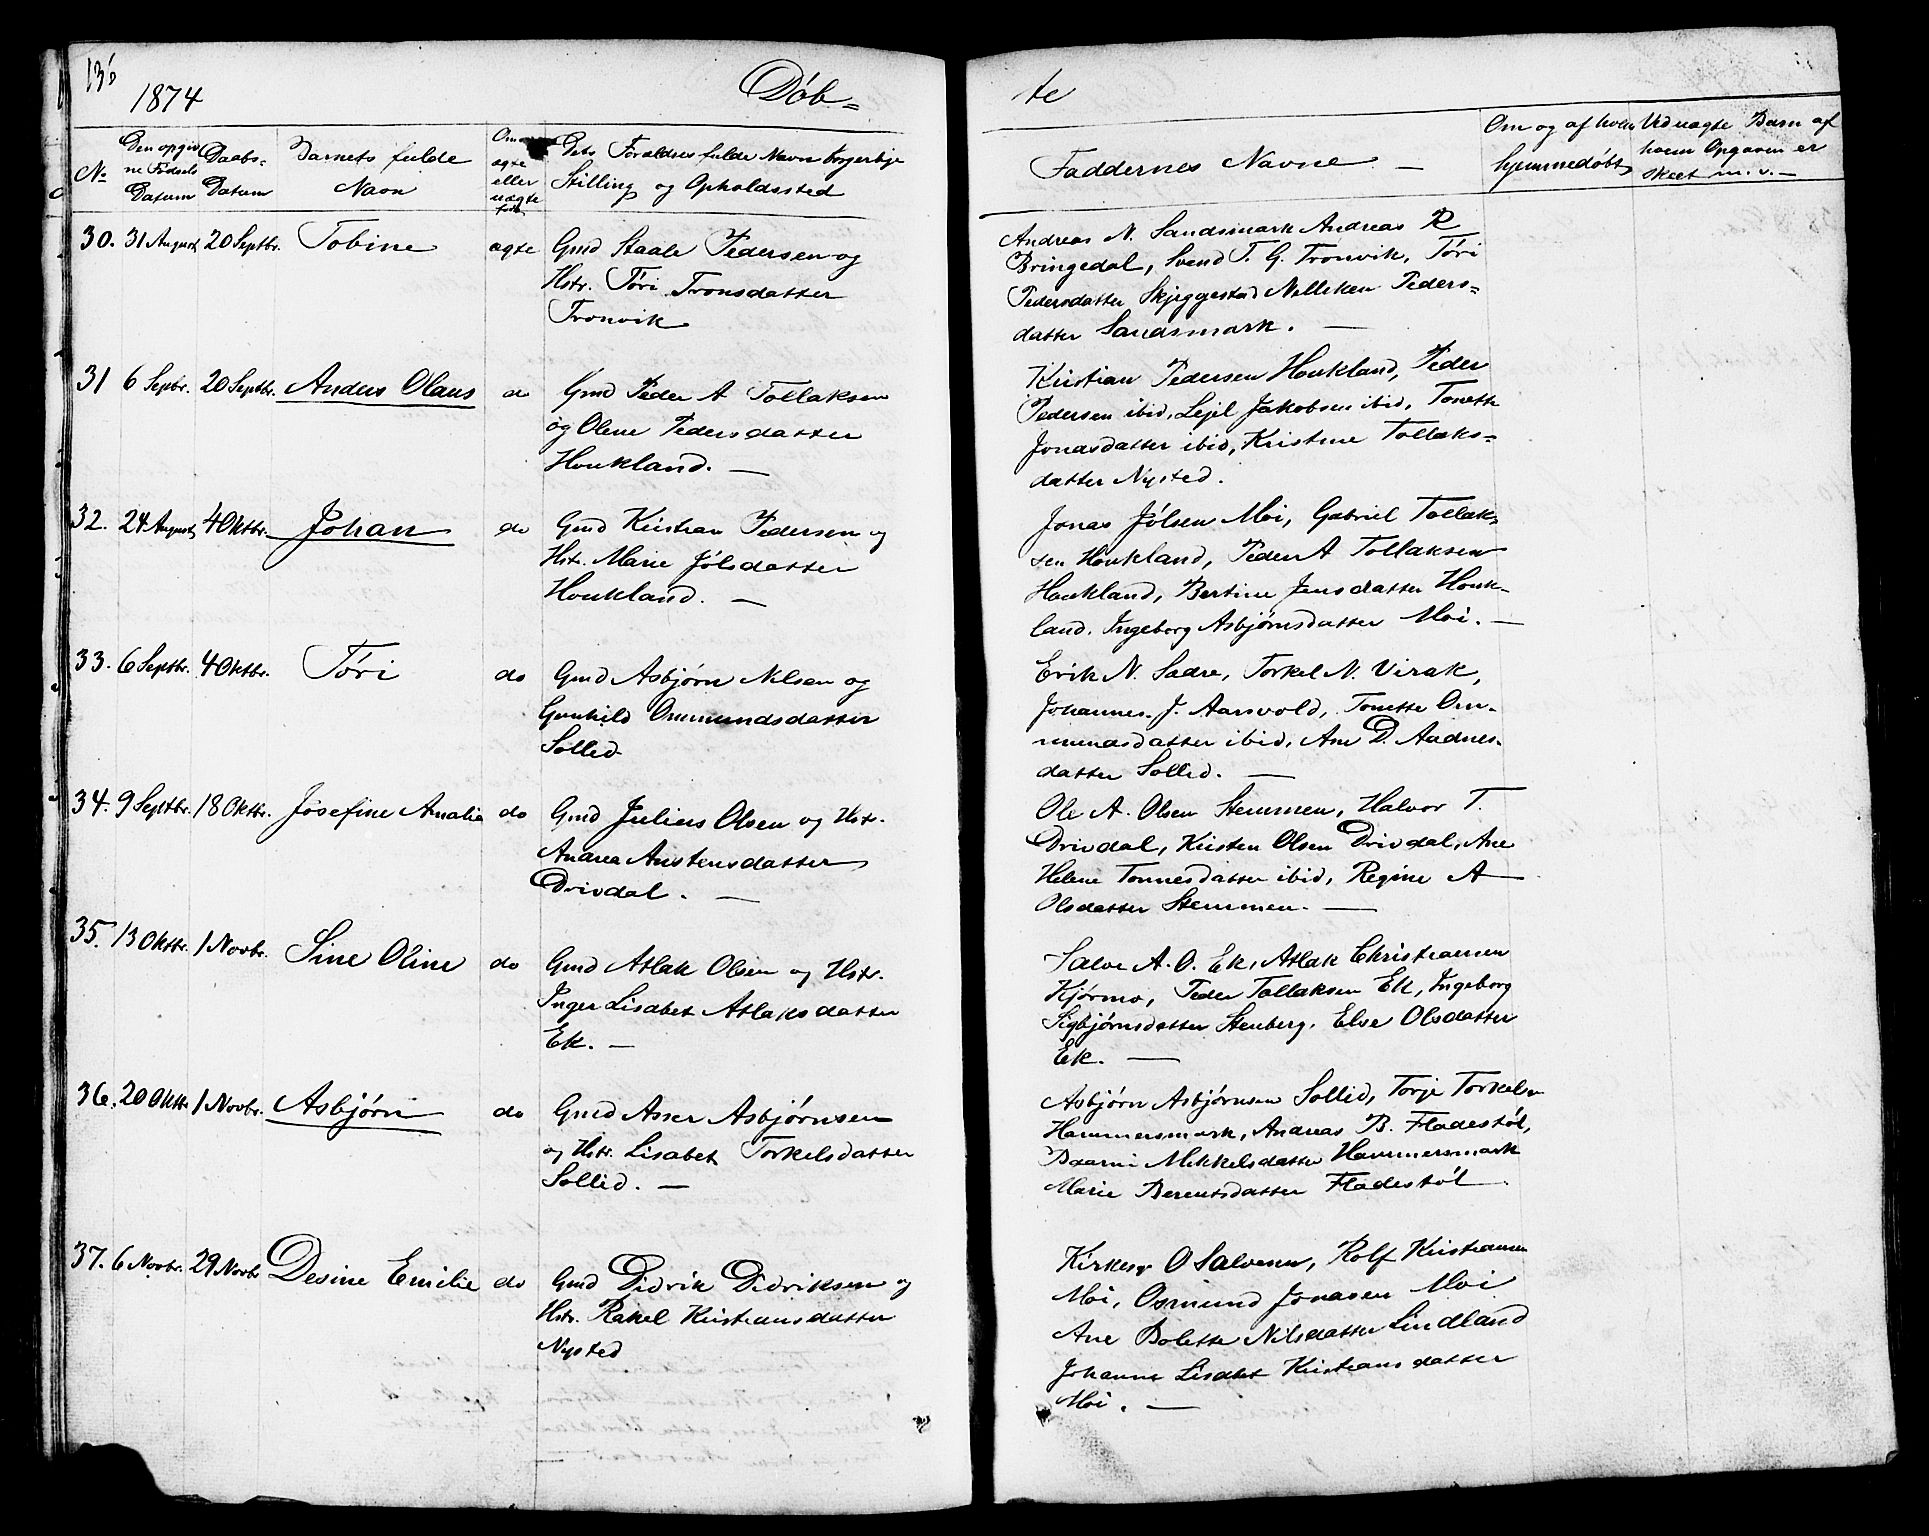 136
1874
Döb=
te
No
Den opgiv
ne Fødsels
Datum
Daabs=
Datum
Barnets fulde
Navn
Om
ægte
eller
uægte
født
Dets Forældres fulde Navn borgerlige
Stilling og Opholdssted
Faddernes Navne —
Om og af hvem
hjemmedøbt
Ved uægte Barn af
hvem Opgaven er
skeet m. v. —
30. 31 August 20 Septbr. Tobine ægte
Gmd Staale Pedersen og
Hstr. Töri Tronsdatter
Tronvik
Andreas N. Sandsmark Andreas R
Bringedal, Svend T. G. Tronvik, Töri
Pedersdatter Skjeggestad Nilliken Peders=
datter Sandsmark. —
31 6 Septbr. 20 Septbr. Anders Olaus do
Gmd Peder A Tollaksen
og Olene Pedersdatter
Houkland. —
Kristian Pedersen Houkland, Peder
Pedersen ibid, Lejel Jakobsen ibid, Tonette
Jonasdatter ibid, Kristine Tollaks=
datter Nysted.
32. 24 August 4 Oktbr. Johan do
Gmd Kristian Pedersen og
Hstr. Marie Jölsdatter
Houkland. —
Jonas Jölsen Moi, Gabriel Tollak=
sen Houkland, Peder A Tollaksen
Houkland, Bertine Jensdatter Houk-
land. Ingeborg Asbjørnsdatter Moi. —
33. 6 Septbr. 4 Oktbr. Töri do
Gmd Asbjørn Nilsen og
Gunhild Ommundsdatter
Sollid
Erik N. Sadre, Torkel N. Virak,
Johannes J. Aarsvold, Tonette Om-
mundsdatter ibid, Ane D. Audnes-
datter Sollid. —
34. 9 Septbr. 18 Oktbr. Josefine Amalie do
Gmd Julius Olsen og Hstr.
Andrea Austensdatter
Drivdal. —
Ole A. Olsen Stemmen, Halvor T.
Drivdal, Kristen Olsen Drivdal, Ane
Helene Tonnesdatter ibid, Regine A
Olsdatter Stemmen. —
35. 13 Oktbr. 1 Novbr. Sine Oline do
Gmd Atlak Olsen og Hstr.
Inger Lisabet Atlaksdatter
Ek. —
Salve A. O. Ek, Atlak Christiansen
Kjörmo, Peder Tollaksen Ek, Ingeborg
Sigbjørnsdatter Stenberg, Else Olsdatter
Ek. —
36. 20 Oktbr 1 Novbr. Asbjørn do
Gmd Asser Asbjørnsen
og Hstr. Lisabet Torkelsdatter
Sollid. —
Asbjørn Asbjørnsen Sollid, Torje Torkelsen
Hammersmark, Andreas B. Fladestöl,
Baarni Mikkelsdatter Hammersmark
Marie Berentsdatter Fladestöl.
37. 6 Novbr. 29 Novbr Desine Emilie do
Gmd Didrik Didriksen og
Hstr. Rakel Kristiansdatter
Nysted
Kirkesgr O Salvesen, Rolf Kristiansen
Moi, Osmund Jonasen Moi
Ane Bolette Nilsdatter Lindland
Johanne Lisabet Kristiansdatter
Moi. —